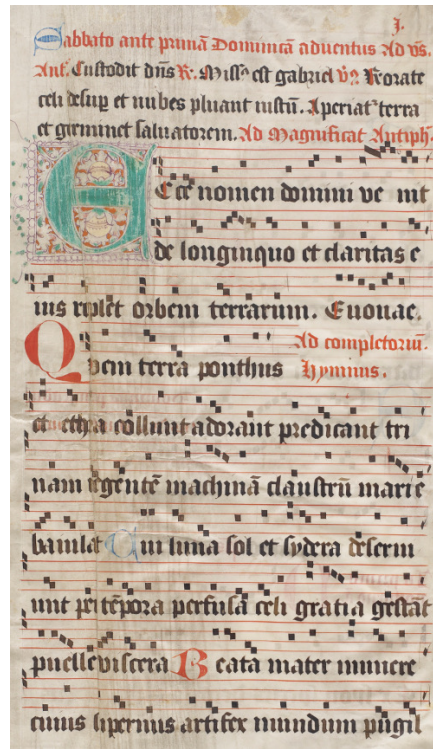 J.
Sabbato ante primā Dominicā aduentus Ad vs̄.
Ant. Custodit dn̄s R. Miss᷒ est gabriel v̄. Rorate
celi desup et nubes pluant iustū. Aperiat᷒ terra
et germinet saluatorem. Ad Magnificat Antiph.
Ecce nomen domini ve nit
de longinquo et claritas e
ius replet orbem terrarum. Euouae.
Ad completoriū.
Quem terra ponthus Hymnus.
et ethra collunt adorant predicant tri
nam regentē machinā claustrū marie
baiulat Cui luna sol et sydera deserui
unt per tēpora perfusā celi gratia gestāt
puelle viscera Beata mater munere
cuius supernus artifex mundum pugil